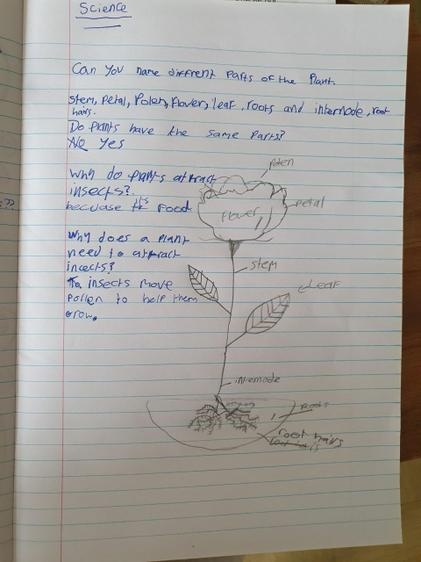 Science
Can you name diffrent parts of the Plant
stem, Petal, Polen, flower, leaf, roots and internode, root
hairs.
Do Plants have the same Parts?
No Yes
Why do plants attract
insects?
becuase it's food
Why does a plant
need to attract
incects?
insects move
Pollen to help them
Grow.
Polen
Petal
flower
stem
Leaf
internode
Roots
root hairs
root hairs